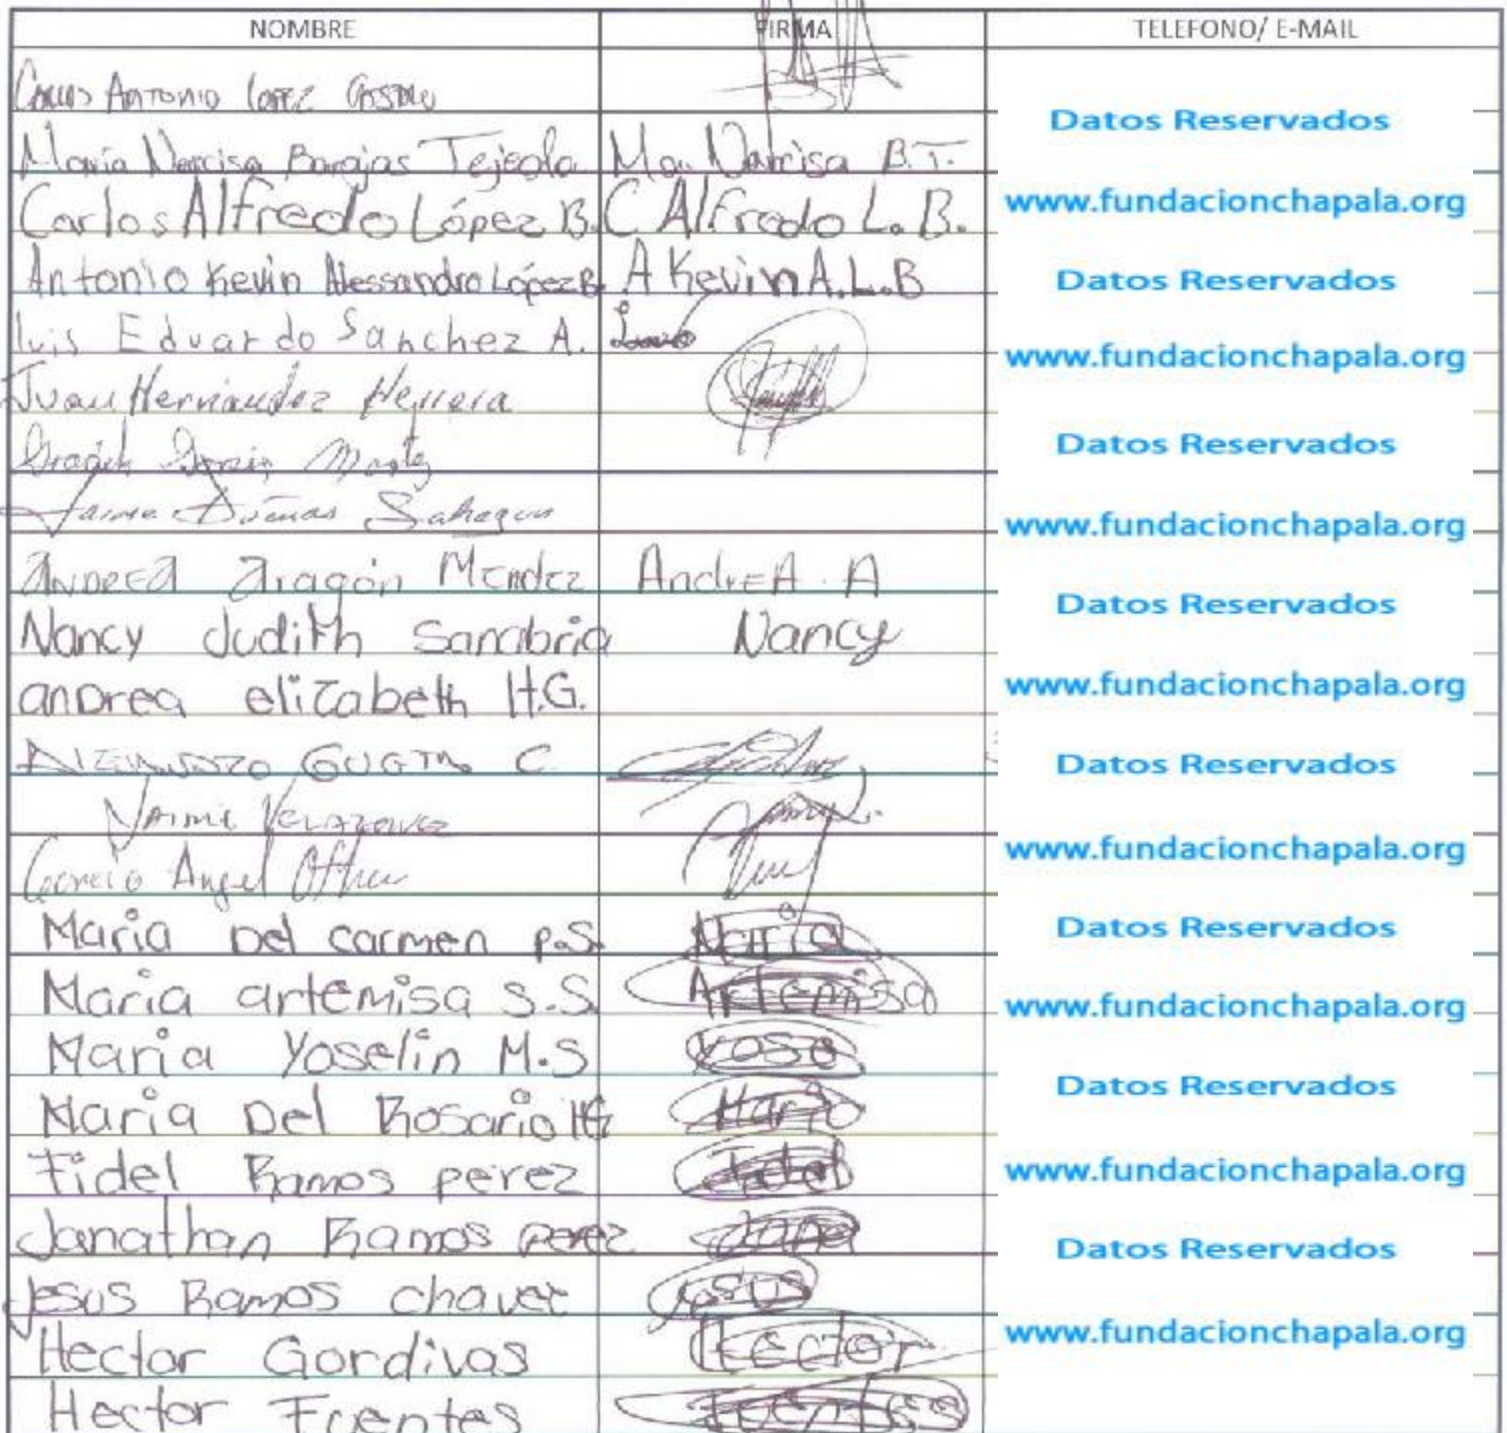 NOMBRE FIRMA TELEFONO/ E-MAIL
Carlos Antonio Lopez
Datos Reservados
Maria Narcisa Barajas Tejeda Ma. Narcisa B.T.
Carlos Alfredo López B. C Alfredo L. B. www.fundacionchapala.org
Antonio Kevin Alessandro López B. A Kevin A.L.B Datos Reservados
luis Eduardo Sanchez A.
www.fundacionchapala.org
Juan Hernandez Herrera
Datos Reservados
Jaime Dueñas Sahagun www.fundacionchapala.org
andrea aragón Mendez AndreA A
Datos Reservados
Nancy Judith Sanabria Nancy
andrea elizabeth H.G. www.fundacionchapala.org
C. Datos Reservados
Jaime Velazquez
www.fundacionchapala.org
Angel
Maria Del carmen p.S. Maria Datos Reservados
Maria artemisa S.S. Artemisa www.fundacionchapala.org
Maria Yoselin M.S Yose
Datos Reservados
Maria Del Rosario HG Mario
Fidel Ramos perez Fidel www.fundacionchapala.org
Janathan Ramos perez Jona Datos Reservados
Jesus Ramos chavez Jesus
www.fundacionchapala.org
Hector Gordivas Hector
Hector Fuentes Fuentes